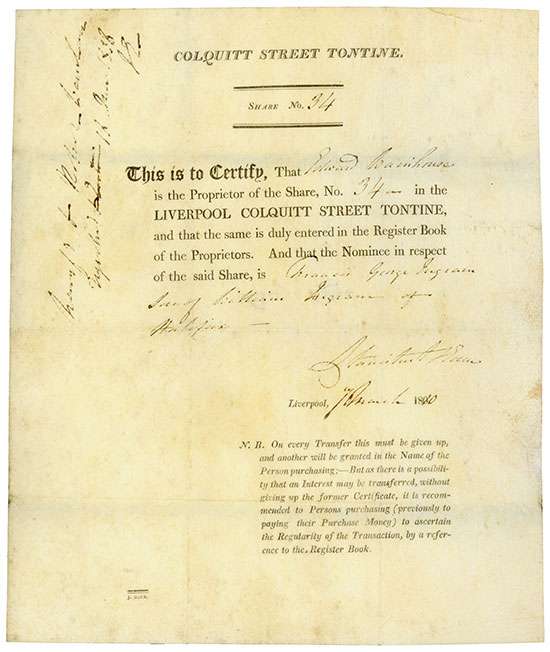 COLQUITT STREET TONTINE.
SHARE No. 34
This is to Certify, That Edward
is the Proprietor of the Share, No. 34 in the
LIVERPOOL COLQUITT STREET TONTINE,
and that the same is duly entered in the Register Book
of the Proprietors. And that the Nominee in respect
of the said Share, is Francis George Ingram
Son of William Ingram of
Halifax
Liverpool, March 1800
N. B. On every Transfer this must be given up,
and another will be granted in the Name of the
Person purchasing:—But as there is a possibili-
ty that an Interest may be transferred, without
giving up the former Certificate, it is recom-
mended to Persons purchasing (previously to
paying their Purchase Money) to ascertain
the Regularity of the Transaction, by a refer-
ence to the Register Book.